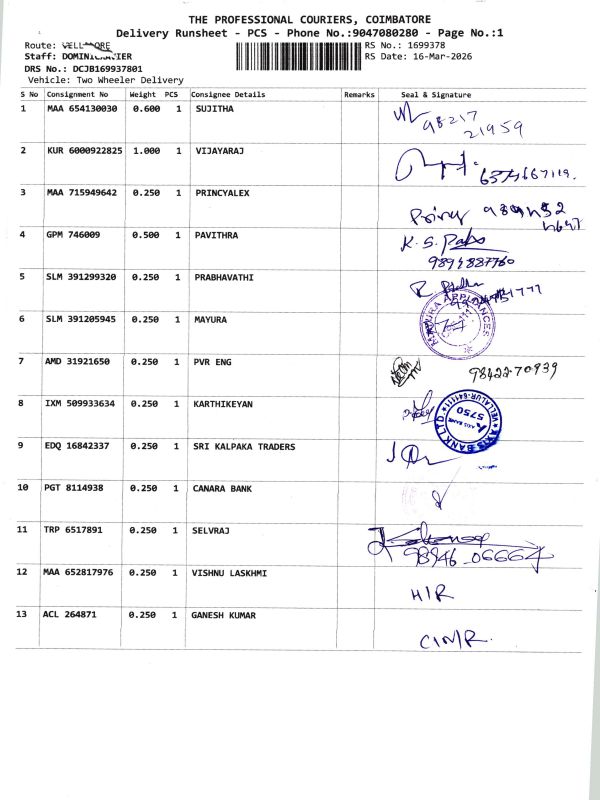 THE PROFESSIONAL COURIERS, COIMBATORE
Delivery Runsheet - PCS - Phone No.:9047080280 - Page No.:1
Route: RS No.: 1699378
Staff: RS Date: 16-Mar-2026
DRS No.: DCJB169937801
Vehicle: Two Wheeler Delivery
S No Consignment No Weight PCS Consignee Details Remarks Seal & Signature
1 MAA 654130030 0.600 1 SUJITHA
98217
21959
2 KUR 6000922825 1.000 1 VIJAYARAJ
3 MAA 715949642 0.250 1 PRINCYALEX
4 GPM 746009 0.500 1 PAVITHRA K.S.
9894887760
5 SLM 391299320 0.250 1 PRABHAVATHI R.
6 SLM 391205945 0.250 1 MAYURA MAYURA APPLIANCES
7 AMD 31921650 0.250 1 PVR ENG 9842270939
8 IXM 509933634 0.250 1 KARTHIKEYAN AXIS BANK LTD VELLALUR-641111 AXIS BANK 5750
9 EDQ 16842337 0.250 1 SRI KALPAKA TRADERS
10 PGT 8114938 0.250 1 CANARA BANK
11 TRP 6517891 0.250 1 SELVRAJ
98946-06664
12 MAA 652817976 0.250 1 VISHNU LASKHMI H/R
13 ACL 264871 0.250 1 GANESH KUMAR C/N/R.